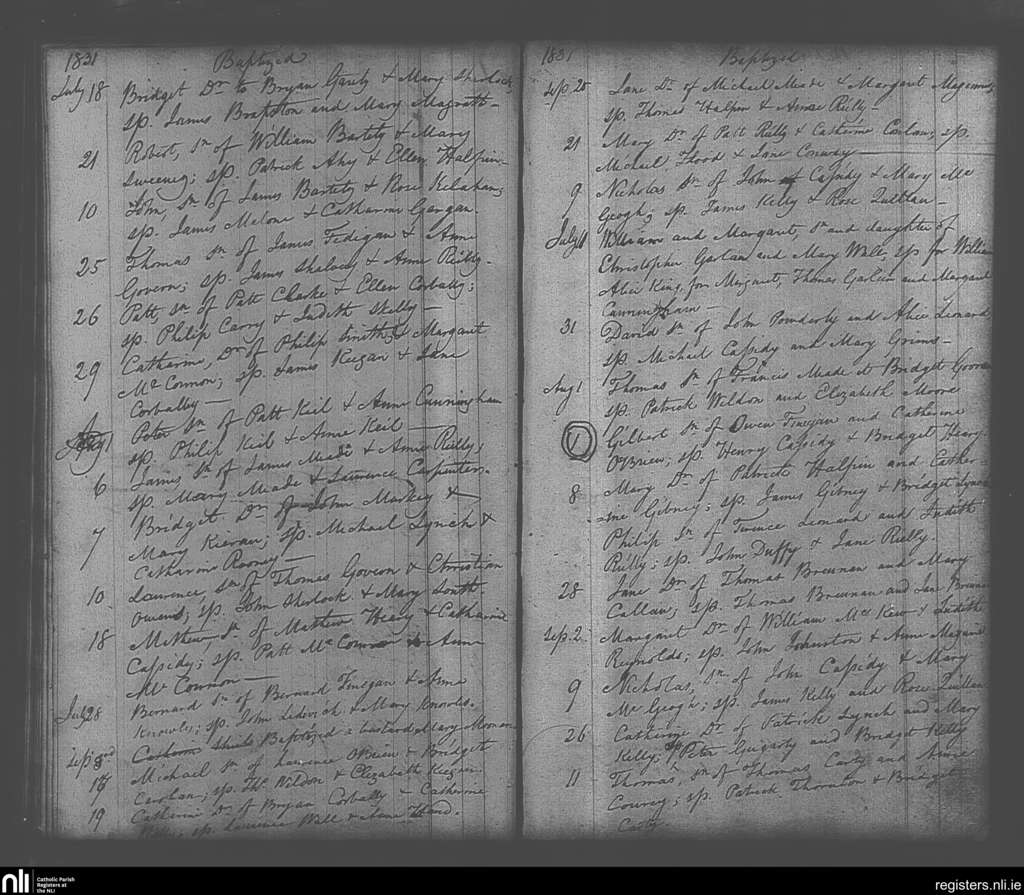 1831 Baptized
July 18 Bridget Dr. to Bryan Garity & Mary Sherlock
sp. James Brapston and Mary Magrath
21 Robert, Sn of William Bartety & Mary
Sweeney; sp. Patrick Ahy & Ellen Halpin
10 John, Sn of James Bartety & Rose Kelahan;
sp. James Malone & Catharine Gargan.
25 Thomas Sn of James Fedigan & Anne
Govern; sp. James Shalovey & Anne Reilly.
26 Patt, Sn of Patt Clarke & Ellen Corbally;
sp. Philip Carry & Judith Skelly
29 Catharine, Dr. of Philip Smith & Margaret
McConnon; sp. James Keegan & Jane
Corballey
Aug 1 Peter Sn of Patt Keil & Anne Cunningham
sp. Philip Keil & Anne Keil
6 James Sn of James Meade & Anne Reilly;
sp. Mary Meade & Laurence Carpenters.
7 Bridget Dr. of John Markey &
Mary Kieran; sp. Michael Lynch &
Catharine Rooney
10 Laurence, Sn of Thomas Govern & Christian
Owens; sp. John Sherlock & Mary South.
18 Mathew, Sn. of Mathew Heavy & Catharine
Cassidy; sp. Patt McConnon & Anne
McConnon
July 28 Bernard Sn of Bernard Finegan & Anna
Knowls; sp. John Ledwich & Mary Knowls.
Sep. 3rd Baptized a bastard Mary Moonan
17 Michael Sn. of Laurence O'Brien & Bridget
Carolan; sp. Ths. Wildon & Elizabeth Keegan
19 Catherine Dr. of Bryan Corbally & Catherine
sp. Laurence Well & Anne Hand.
1831 Baptized
Sep. 20 Jane Dr. of Michael Meade & Margaret
sp. Thomas Halpin & Anne Reilly
21 Mary Dr. of Patt Reilly & Catherine Carlan; sp.
Michael Flood & Jane Conway
9 Nicholas Sn. of John Cassidy & Mary Mc
Geogh; sp. James Kelly & Rose Quillan
July 11 William and Margaret, Sn and daughter of
Christopher Garlan and Mary Well, sp for William
Alice King, for Margaret, Thomas Garlan and Margaret
Cunningham
31 David Sn. of John Powderly and Alice Leonard
sp. Michael Cassidy and Mary Grimes
Aug 1 Thomas Sn. of Francis Made & Bridget
sp. Patrick Weldon and Elizabeth Moore
Gilbert Sn. of Owen Finegan and Catherine
O'Brien; sp. Henry Cassidy & Bridget Heary.
8 Mary Dr. of Patrick Halpin and Cather-
-ine Gibney; sp. James Gibney & Bridget Lynch
Philip Sn. of Terence Leonard and Judith
Reilly; sp. John Duffy & Jane Reilly.
28 Jane Dr. of Thomas Brennan and Mary
Callan; sp. Thomas Brennan and Jane Brennan
Sep. 2 Margaret Dr. of William McKew & Judith
Reynolds; sp. John Johnston & Anne
9 Nicholas, Sn. of John Cassidy & Mary
McGeogh; sp. James Kelly and Rose Quillan
26 Catherine Dr. of Patrick Lynch and Mary
Kelly; sp. Peter Geigarty and Bridget Kelly
11 Thomas, Sn of Thomas Carty and Anne
Conrey; sp. Patrick Thornton & Bridget
Carty
nli Catholic Parish
Registers at
the NLI
registers.nli.ie